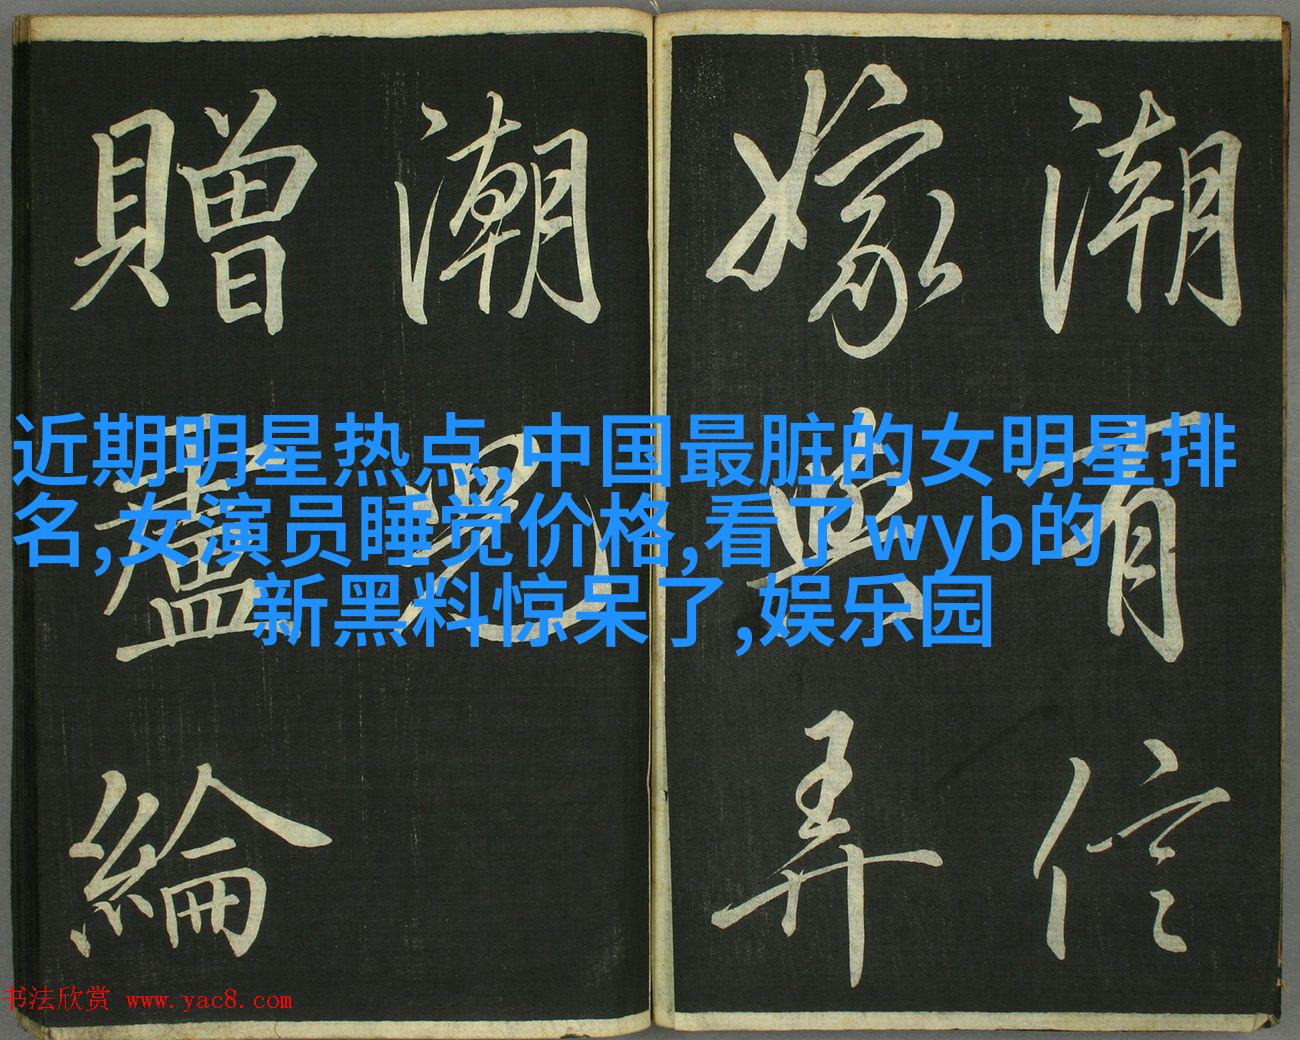 潮有信
嫁與弄
潮兒
贈盧綸
近期明星热点,中国最脏的女明星排
名,女演员睡觉价格,看了wyb的
新黑料惊呆了,娱乐园
书法欣赏 www.yac8.com